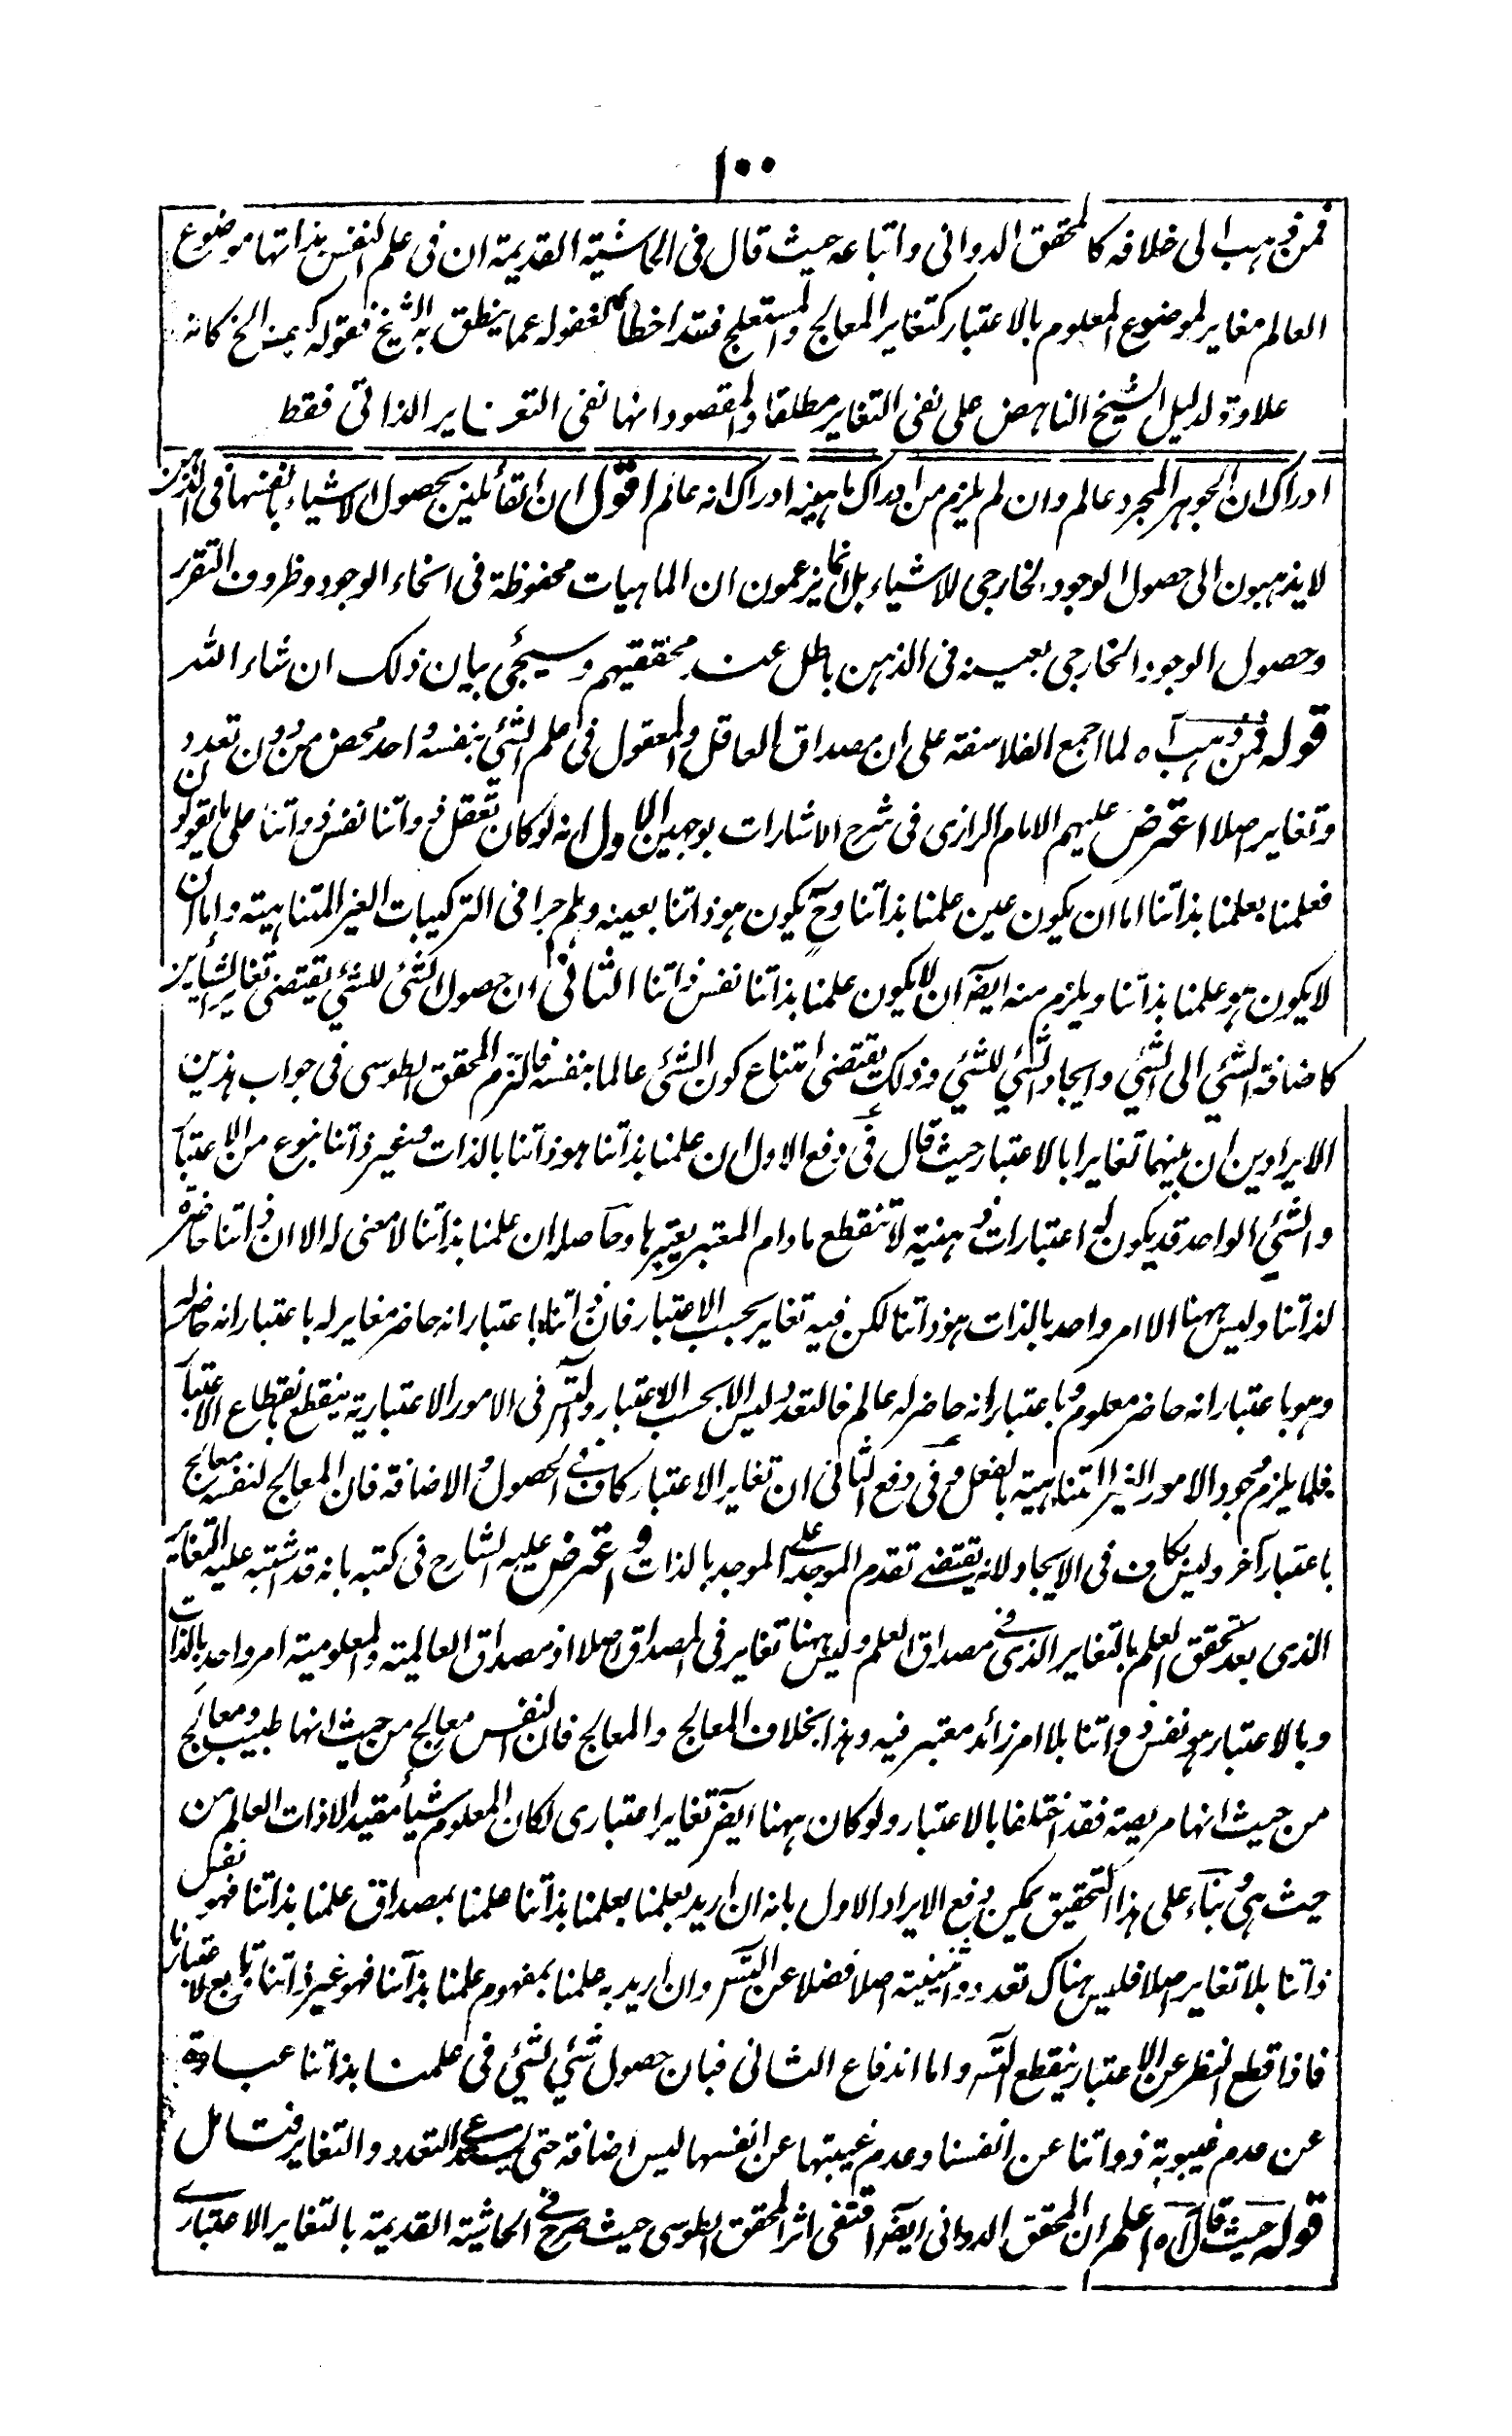 ١٠٠
فمن ذهب الى خلافه كالمحقق الدواني واتباعه حيث قال في الحاشية القديمة ان في علم النفس بذاتها موضوع
العالم مغاير لموضوع المعلوم بالاعتبار كتغاير المعالج والمستعلج فقد اخطأ لغفوله عما ينطق به الشيخ فقوله كمن الخ كانه
علاوة لدليل الشيخ الناهض على نفي التغاير مطلقا والمقصود انها نفي التغاير الذاتي فقط
ادراك ان الجوهر المجرد عالم وان لم يلزم من ادراك ماهيته ادراك انه عالم اقول ان القائلين بحصول الاشياء بانفسها في الذهن
لا يذهبون الى حصول الوجود الخارجي للاشياء بل انما يزعمون ان الماهيات محفوظة في انحاء الوجود وظروف التقرر
وحصول الوجود الخارجي بعينه في الذهن باطل عند محققيهم وسيجئ بيان ذلك ان شاء الله
قوله فمن ذهب آه لما اجمع الفلاسفة على ان مصداق العاقل والمعقول في علم الشئ بنفسه واحد محض من دون تعدد
وتغاير اصلا اعترض عليهم الامام الرازي في شرح الاشارات بوجهين الاول انه لو كان تعقل ذواتنا نفس ذواتنا على ما يقولون
فعلمنا بعلمنا بذاتنا اما ان يكون عين علمنا بذاتنا وح يكون هو ذاتنا بعينه وهلم جرا في التركيبات الغير المتناهية واما ان
لا يكون هو علمنا بذاتنا ويلزم منه ايضا ان لا يكون علمنا بذاتنا نفس ذاتنا الثاني ان حصول الشئ للشئ يقتضي تغاير الشيئين
كاضافة الشئ الى الشئ وايجاد الشئ للشئ وذلك يقتضي امتناع كون الشئ عالما بنفسه فالتزم المحقق الطوسي في جواب هذين
الايرادين ان بينهما تغايرا بالاعتبار حيث قال في دفع الاول ان علمنا بذاتنا هو ذاتنا بالذات وغير ذاتنا بنوع من الاعتبار
والشئ الواحد قد يكون له اعتبارات ذهنية لا تنقطع ما دام المعتبر يعتبرها وحاصله ان علمنا بذاتنا لا معنى له الا ان ذاتنا حاضرة
لذاتنا وليس ههنا الا امر واحد بالذات هو ذاتنا لكن فيه تغاير بحسب الاعتبار فان ذاتنا باعتبار انه حاضر مغاير له باعتبار انه حاضر له
وهو باعتبار انه حاضر معلوم وباعتبار انه حاضر له عالم فالتعدد ليس الا بحسب الاعتبار والتس في الامور الاعتبارية ينقطع بانقطاع الاعتبار
فلا يلزم وجود الامور الغير المتناهية بالفعل وفي دفع الثاني ان تغاير الاعتبار كاف في الحصول والاضافة فان المعالج لنفسه معالج
باعتبار آخر وليس بكاف في الايجاد لانه يقتضي تقدم الموجد على الموجد بالذات واعترض عليه الشارح في كتبه بانه قد اشتبه عليه التغاير
الذي بعد تحقق العلم بالتغاير الذي في مصداق العلم وليس ههنا تغاير في المصداق اصلا اذ مصداق العالمية والمعلومية امر واحد بالذات
وبالاعتبار هو نفس ذواتنا بلا امر زائد معتبر فيه وهذا بخلاف المعالج والمعالج فان النفس معالج من حيث انها طبيب ومعالج
من حيث انها مريضة فقد اختلفا بالاعتبار ولو كان ههنا ايضا تغاير اعتباري لكان المعلوم شيأ مقيدا لا ذات العالم من
حيث هي وبناء على هذا التحقيق يمكن دفع الايراد الاول بانه ان اريد بعلمنا بعلمنا بذاتنا علمنا بمصداق علمنا بذاتنا فهو نفس
ذاتنا بلا تغاير اصلا فليس هناك تعدد واثنينية اصلا فضلا عن التس وان اريد به علمنا بمفهوم علمنا بذاتنا فهو غير ذاتنا تابع لاعتبارنا
فاذا قطع النظر عن الاعتبار ينقطع التس واما اندفاع الثاني فبان حصول شئ لشئ في علمنا بذاتنا عبارة
عن عدم غيبوبة ذواتنا عن انفسنا وعدم غيبتها عن انفسها ليس اضافة حتى يستدعي التعدد والتغاير فتامل
قوله حيث قال آه اعلم ان المحقق الدواني ايضا اقتفى اثر المحقق الطوسي حيث صرح في الحاشية القديمة بالتغاير الاعتباري